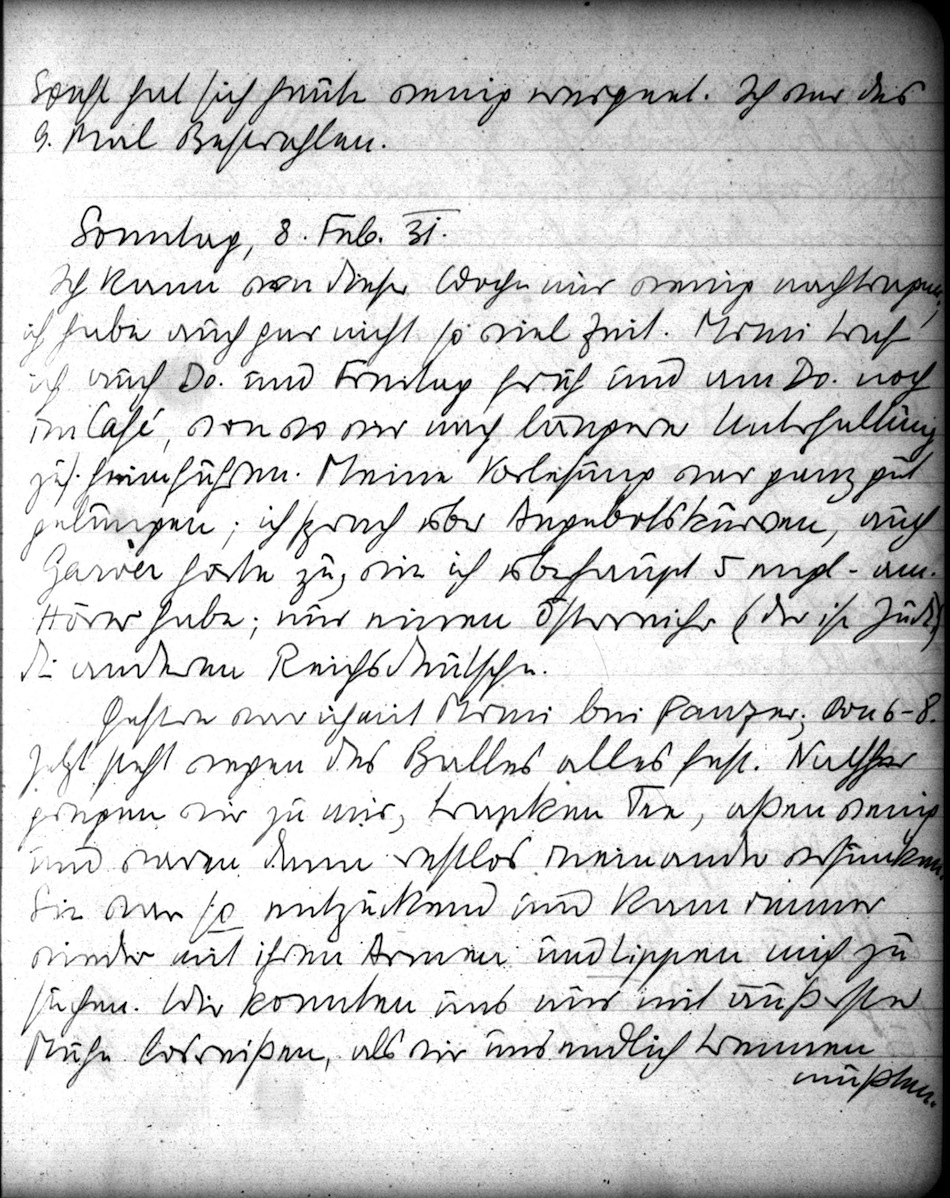 Sonst hat sich heute wenig ereignet. Ich war das
9. Mal Bestrahlen.
Sonntag, 8. Feb. 31.
Ich kann von dieser Woche nur wenig nachtragen,
ich habe auch gar nicht so viel Zeit. Mimi traf
ich auch Do. und Freitag früh und am Do. noch
im Café, von wo wir nach längerer Unterhaltung
zus. heimfuhren. Meine Vorlesung war ganz gut
gelungen; ich sprach über Angebotskurven, auch
Garver hörte zu, wie ich überhaupt 5 engl.-am.
Hörer habe; nur einen Österreicher (der ist Jude)
die anderen Reichsdeutsche.
Gestern war ich mit Mimi bei Panzer, von 6-8.
Jetzt steht wegen des Balles alles fest. Nachher
gingen wir zu mir, tranken Tee, aßen wenig
und waren dann restlos ineinander versunken.
Sie war so entzückend und kam immer
wieder mit ihren Armen und Lippen mich zu
suchen. Wir konnten uns nur mit äußerster
Mühe losreißen, als wir uns endlich trennen
mußten.